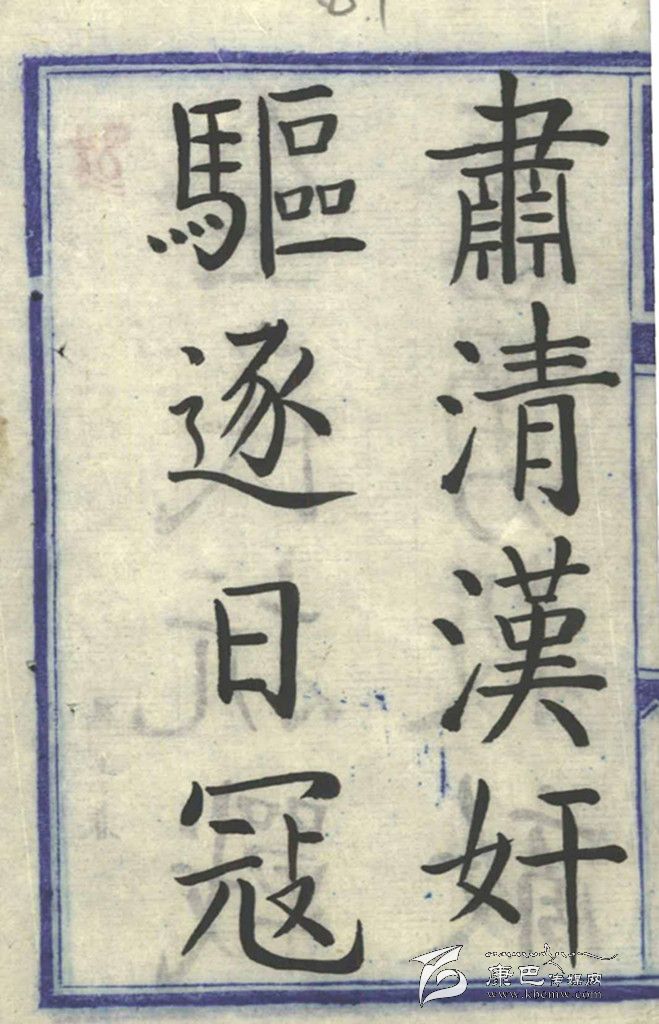 肅清漢奸
驅逐日寇
康巴传媒网
www.kbcmw.com